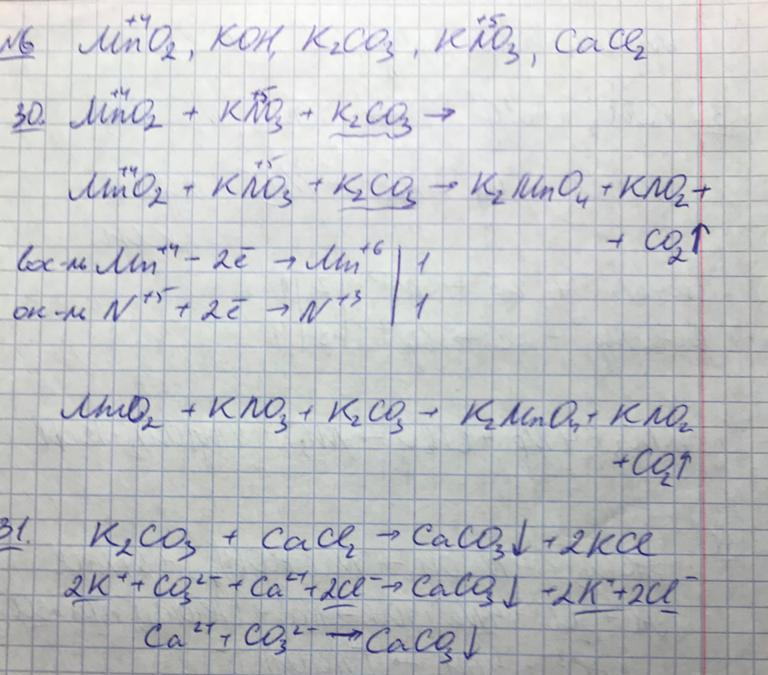 №6 Mn⁺⁴O₂, KOH, K₂CO₃, KN⁺⁵O₃, CaCl₂
30. Mn⁺⁴O₂ + KN⁺⁵O₃ + K₂CO₃ →
Mn⁺⁴O₂ + KN⁺⁵O₃ + K₂CO₃ → K₂MnO₄ + KNO₂ +
+ CO₂↑
вос-ль Mn⁺⁴ - 2ē → Mn⁺⁶ | 1
ок-ль N⁺⁵ + 2ē → N⁺³ | 1
MnO₂ + KNO₃ + K₂CO₃ → K₂MnO₄ + KNO₂
+ CO₂↑
31. K₂CO₃ + CaCl₂ → CaCO₃↓ + 2KCl
2K⁺ + CO₃²⁻ + Ca²⁺ + 2Cl⁻ → CaCO₃↓ + 2K⁺ + 2Cl⁻
Ca²⁺ + CO₃²⁻ → CaCO₃↓